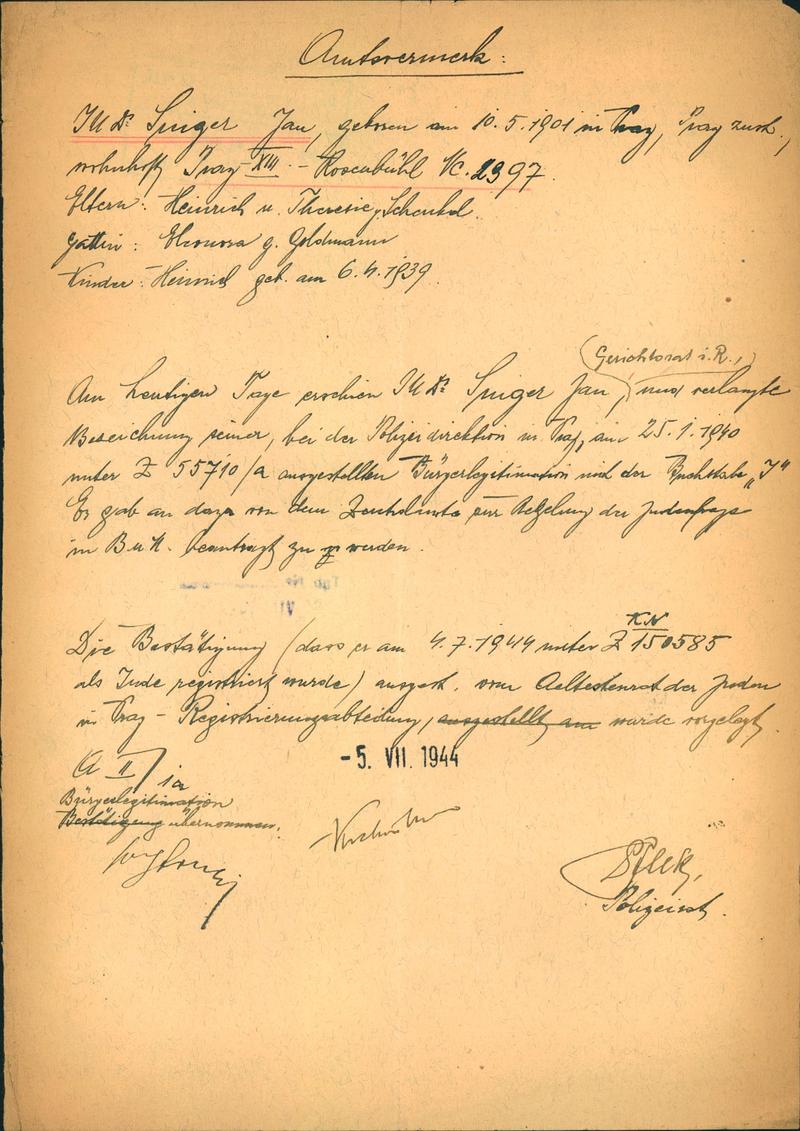 Amtsvermerk:
JUDr Singer Jan, geboren am 10.5.1901 in Prag, Prag zust.,
wohnhaft Prag XIII. - Rosenbühl Nc. 2397.
Eltern: Heinrich u. Theresie, Schenkel.
Gattin: Eleonora g. Goldmann
Kinder: Heinrich geb. am 6.4.1939.
(Gerichtsrat i.R.,)
Am heutigen Tage erschien JUDr Singer Jan, und verlangte
Bezeichnung seiner, bei der Polizeidirektion in Prag, am 25.1.1940
unter Z 55710/a ausgestellten Bürgerlegitimation mit der Buchstabe „J"
Er gab an dazu von dem Zentralamte zur Regelung der Judenfrage
in B u M. beantragt zu werden.
Tgb No
VI
KN
Die Bestätigung (dass er am 4.7.1944 unter Z 150585
als Jude registriert wurde) ausgest. vom Aeltestenrat der Juden
in Prag - Registrierungsabteilung, ausgestellt am wurde vorgelegt.
-5. VII. 1944
A II/1a
Bürgerlegitimation
Bestätigung übernommen.
Polizeiast.